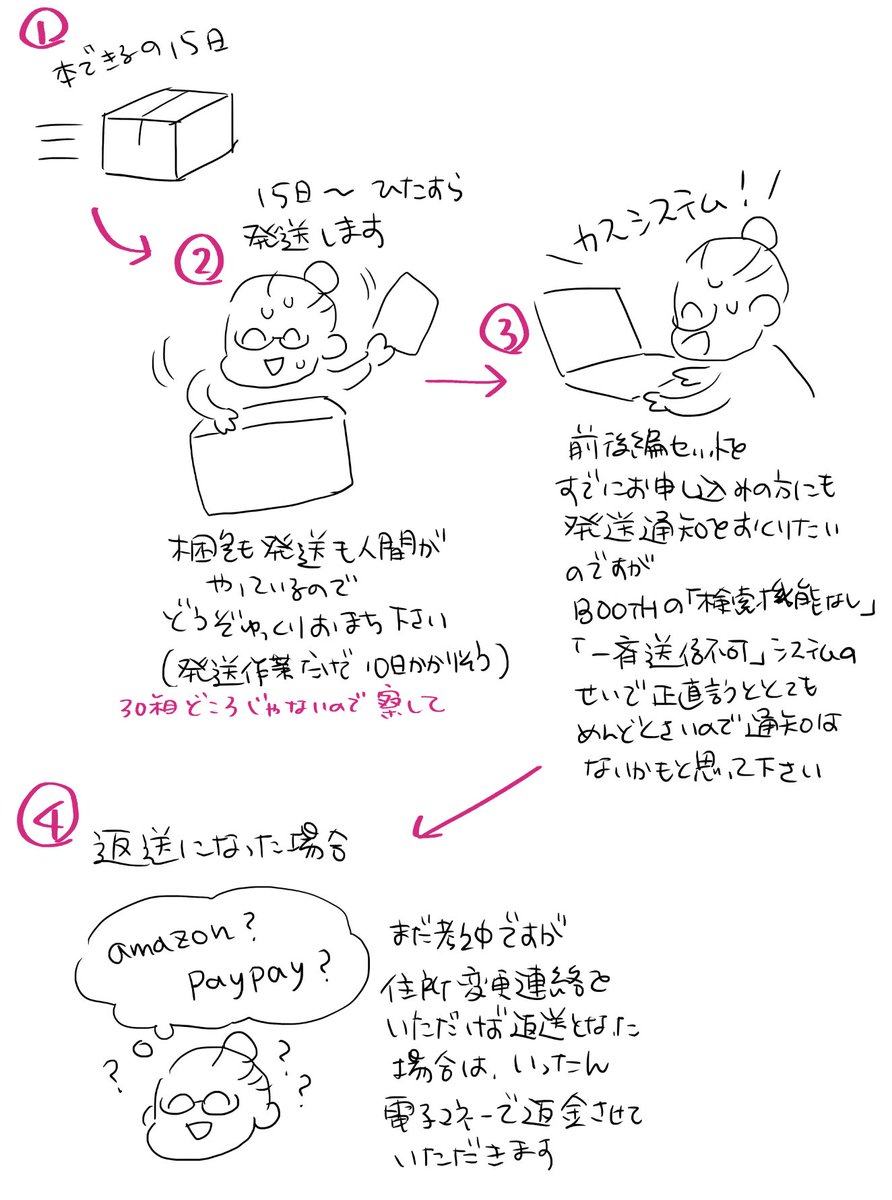 ①
本できるの15日
②
15日〜ひたすら
発送します
梱包も発送も人間が
やっているので
どうぞゆっくりおまち下さい
(発送作業だけで10日かかりそう)
30箱どころじゃないので察して
③
カスシステム!!
前後編セットを
すでにお申し込みの方にも
発送通知をおくりたい
のですが
BOOTHの「検索機能なし」
「一斉送信不可」システムの
せいで正直言うととても
めんどくさいので通知は
ないかもと思って下さい
④
返送になった場合
amazon?
paypay?
? ? ?
まだ考え中ですが
住所変更連絡を
いただけば返送となった
場合は、いったん
電子マネーで返金させて
いただきます